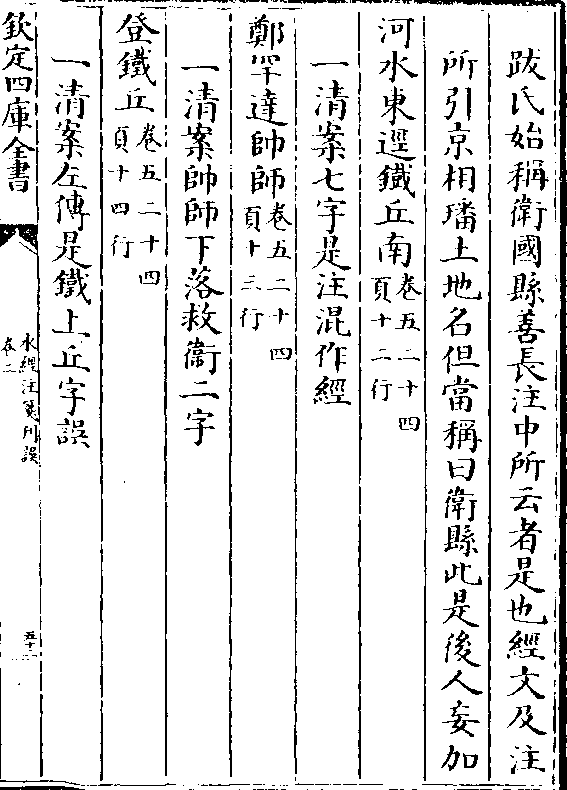 跋氏始稱衛國縣善長注中所云者是也經文及注
所引京相璠土地名但當稱曰衛縣此是後人妄加
河水東逕鐵丘南卷五二十四頁十二行
一清案七字是注混作經
鄭罕達帥師卷五二十四頁十三行
一清案帥師下落救衛二字
登鐵丘卷五二十四頁十四行
一清案左傳是鐵上丘字誤
欽定四庫全書
水經注箋刊誤
卷二